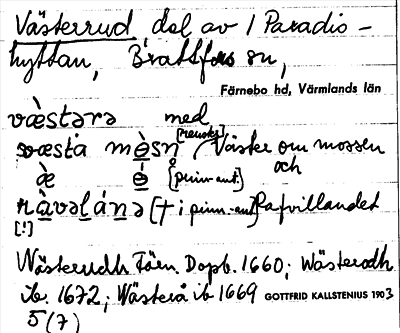 Västerrud del av / Paradis-
hyttan, Brattfors sn,
Färnebo hd, Värmlands län
væ̀stərə med
væsta mɵ̀sṇ / Väster om mossen
æ ɵ̀ {prim-ant.} och
rävəlánə (+ i prim-ant) Räfvillandet
[!]
Wästerudh Färn. Dopb. 1660; Wästerodh
ib. 1672; Wästerå ib 1669 GOTTFRID KALLSTENIUS 1903
5 (7)